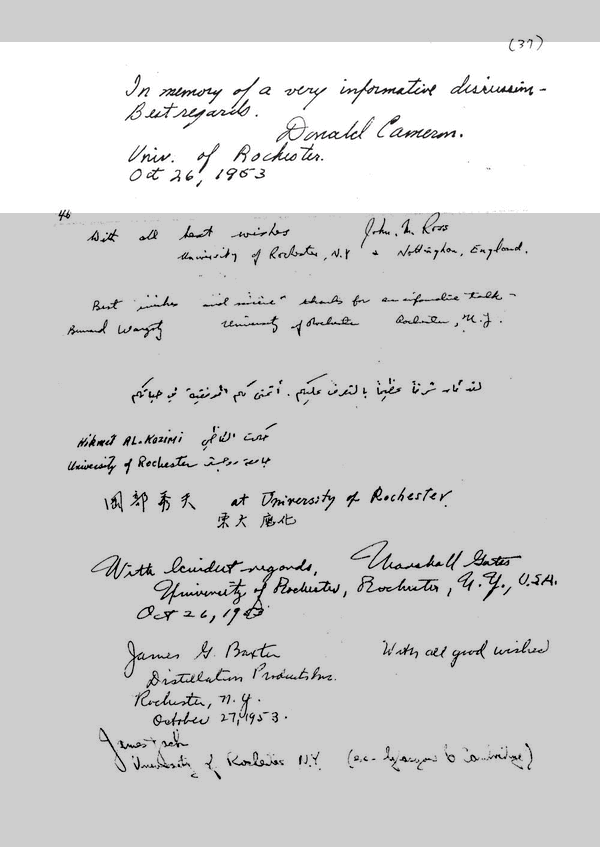 (37)
In memory of a very informative discussion -
Best regards.
Donald Cameron.
Univ. of Rochester.
Oct 26, 1953
46
With all best wishes John. M. Ross
University of Rochester, N.Y & Nottingham, England.
Best wishes and sincere thanks for an informative talk -
University of Rochester Rochester, N.Y.
لقد شرفا عظيما بالتعرف عليكم . أتمنى لكم الموفقية في حياتكم
Hikmet AL-Kozimi حكمت
University of Rochester جامعة
岡部希夫 at University of Rochester.
東大 應化
With kindest regards, Marshall Gates
University of Rochester, Rochester, N.Y., U.S.A.
Oct 26, 1953
James G. Baxter With all good wishes
Distillation Products Inc.
Rochester, N.Y.
October 27, 1953.
James
University of Rochester N.Y. (ex-Glasgow & Cambridge)